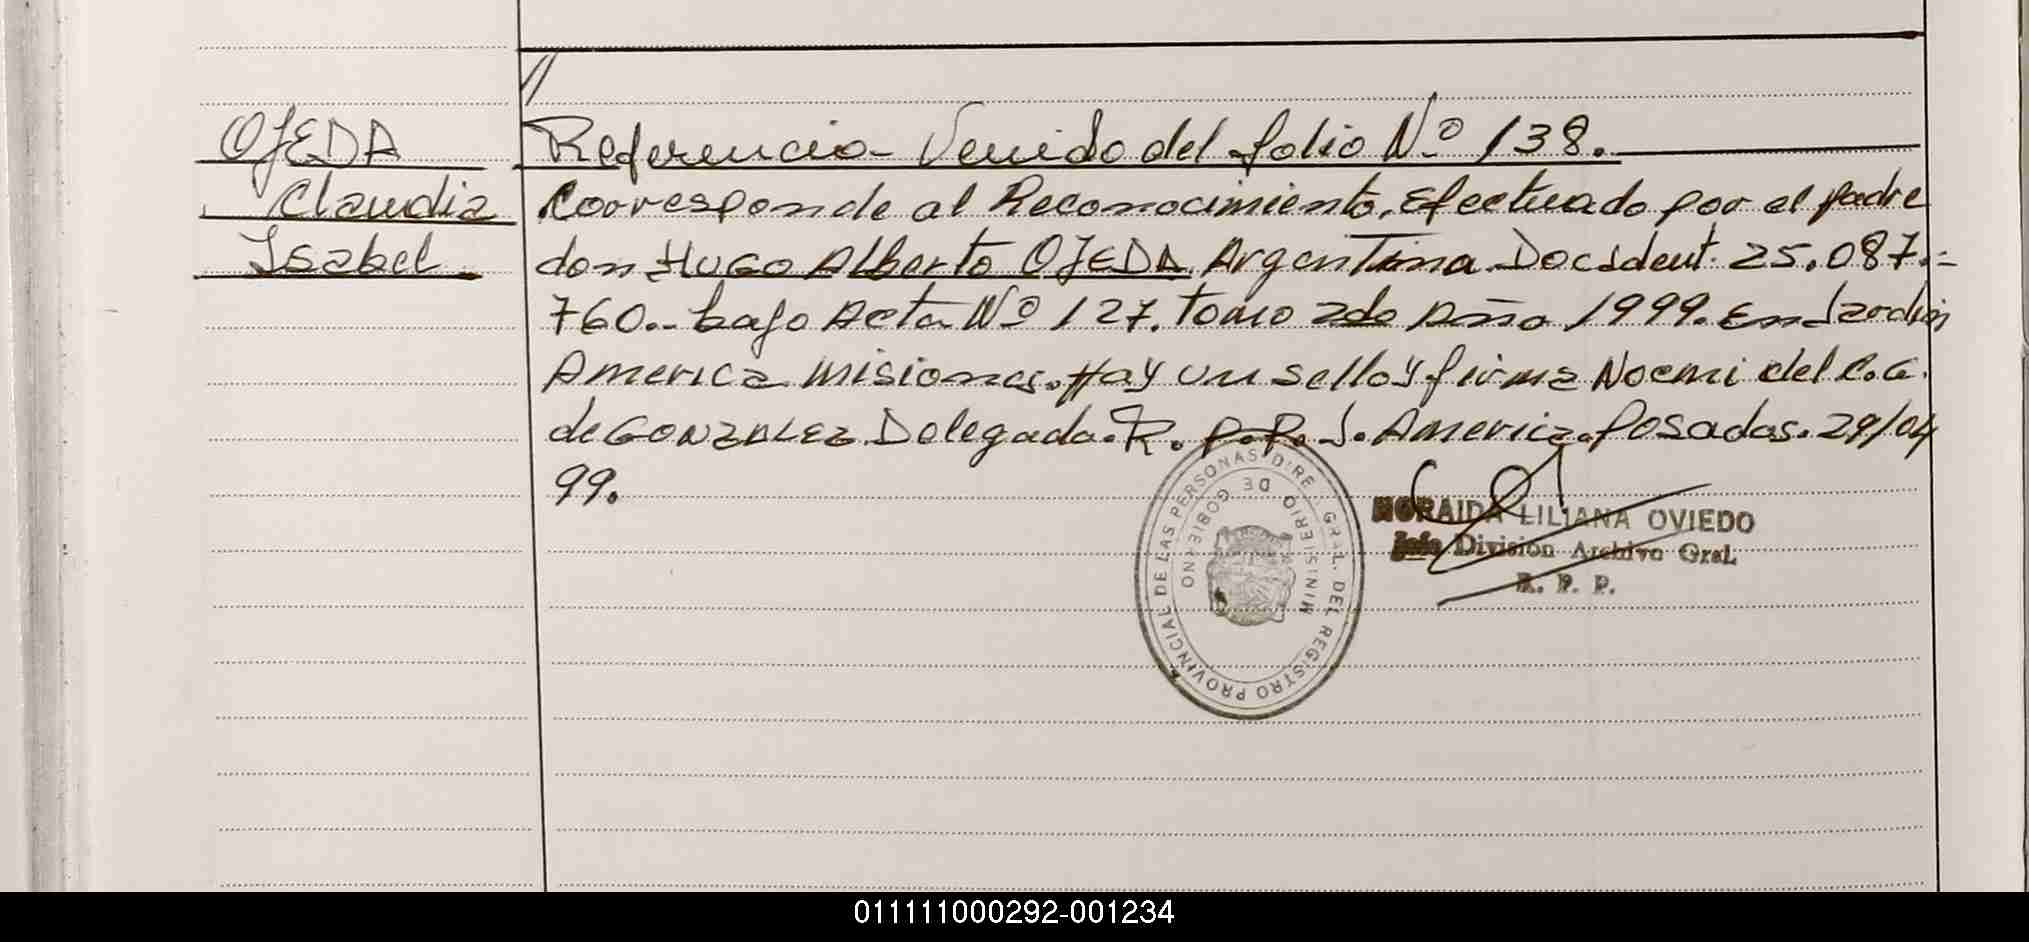 //
OJEDA
Claudia
Isabel
Referencia - Venido del folio Nº 138.
Corresponde al Reconocimiento, Efectuado por el padre
don HUGO Alberto OJEDA Argentina Doc Ident. 25.087.=
760.- bajo Acta Nº 127. tomo 2do Año 1999. En Jardin
America Misiones. Hay un sello y firma Noemi del C. G.
de GONZALEZ Delegada. R. P. P. J. America. Posadas. 29/04
99.
DIRE GRAL. DEL REGISTRO PROVINCIAL DE LAS PERSONAS
MINISTERIO DE GOBIERNO
NORAIDA LILIANA OVIEDO
Jefe División Archivo Gral.
R. P. P.
011111000292-001234